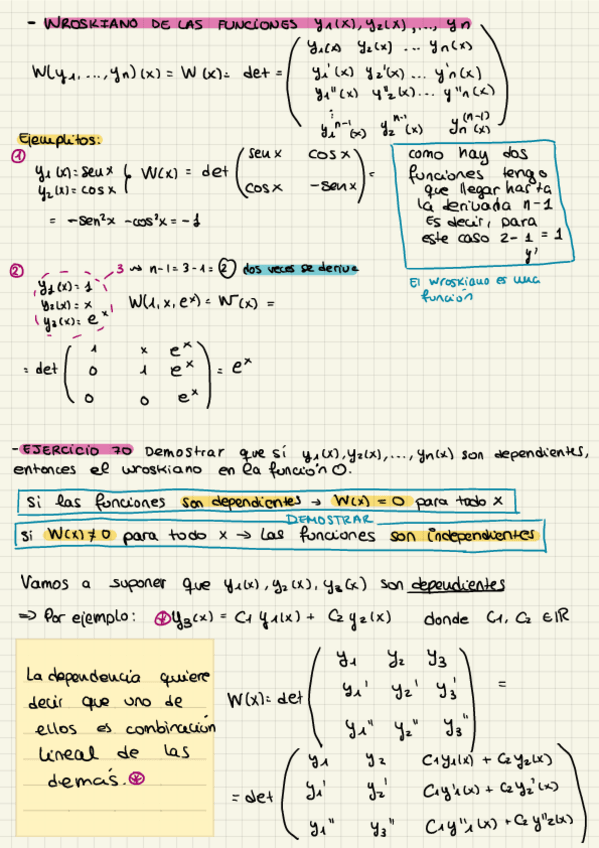 - WROSKIANO DE LAS FUNCIONES y₁(x), y₂(x), ..., yn
W(y₁, ..., yn)(x) = W(x) = det = ( y₁(x) y₂(x) ... yn(x)
y₁'(x) y₂'(x) ... y'n(x)
y₁''(x) y''₂(x) ... y''n(x)
⋮
y₁ⁿ⁻¹(x) y₂ⁿ⁻¹(x) yn⁽ⁿ⁻¹⁾(x) )
Ejemplitos:
① y₁(x) = senx
y₂(x) = cosx } W(x) = det ( senx cosx
cosx -senx ) =
= -sen²x - cos²x = -1
como hay dos
funciones tengo
que llegar hasta
la derivada n-1
Es decir, para
este caso 2-1 = 1
y'
El wroskiano es una
función
② 3 ⇝ n-1 = 3-1 = ② dos veces se deriva
y₁(x) = 1
y₂(x) = x
y₃(x) = eˣ
W(1, x, eˣ) = W(x) =
= det ( 1 x eˣ
0 1 eˣ
0 0 eˣ ) = eˣ
- EJERCICIO 70 Demostrar que si y₁(x), y₂(x), ..., yn(x) son dependientes,
entonces el wroskiano en la función 0.
Si las funciones son dependientes → W(x) = 0 para todo x
DEMOSTRAR
Si W(x) ≠ 0 para todo x → Las funciones son independientes
Vamos a suponer que y₁(x), y₂(x), y₃(x) son dependientes
⇒ Por ejemplo: ⊛ y₃(x) = C₁ y₁(x) + C₂ y₂(x) donde C₁, C₂ ∈ ℝ
La dependencia quiere
decir que uno de
ellos es combinación
lineal de las
demás. ⊛
W(x) = det ( y₁ y₂ y₃
y₁' y₂' y₃'
y₁'' y₂'' y₃'' ) =
= det ( y₁ y₂ C₁y₁(x) + C₂y₂(x)
y₁' y₂' C₁y'₁(x) + C₂y₂'(x)
y₁'' y₃'' C₁y''₁(x) + C₂y''₂(x) )